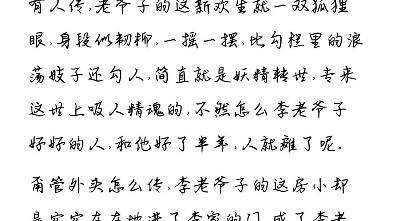 有人传,老爷子的这新欢生就一双狐狸
眼,身段似韧柳,一摇一摆,比勾栏里的浪
荡妓子还勾人,简直就是妖精转世,专来
这世上吸人精魂的,不然怎么李老爷子
好好的人,和他好了半年,人就瘫了呢。
甭管外头怎么传,李老爷子的这房小却
是实实在在地进了李家的门,成了李老